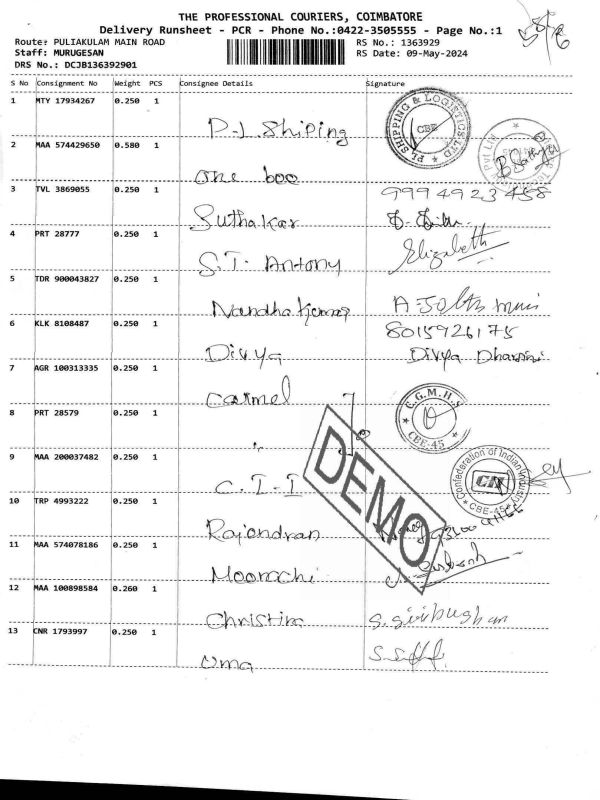 THE PROFESSIONAL COURIERS, COIMBATORE
Delivery Runsheet - PCR - Phone No.:0422-3505555 - Page No.:1
Route: PULIAKULAM MAIN ROAD RS No.: 1363929
Staff: MURUGESAN RS Date: 09-May-2024
DRS No.: DCJB136392901
S No Consignment No Weight PCS Consignee Details Signature
1 MTY 17934267 0.250 1
P-L Shiping PL SHIPPING & LOGISTICS LTD CBE
2 MAA 574429650 0.580 1
one boo Pvt Ltd
3 TVL 3869055 0.250 1 9994923458
Suthakar
4 PRT 28777 0.250 1
S.T. Antony Elizabeth
5 TDR 900043827 0.250 1
Nandha Kumar
6 KLK 8108487 0.250 1 8015926175
Divya Divya Dharshi
7 AGR 100313335 0.250 1
Carmel C.G.M.H.S CBE-45
8 PRT 28579 0.250 1
9 MAA 200037482 0.250 1
C.I-I Confederation of Indian Industry CII CBE-45
10 TRP 4993222 0.250 1
Rajendran
11 MAA 574078186 0.250 1
Moorachi
12 MAA 100898584 0.260 1
Christina
13 CNR 1793997 0.250 1
Uma
DEMO